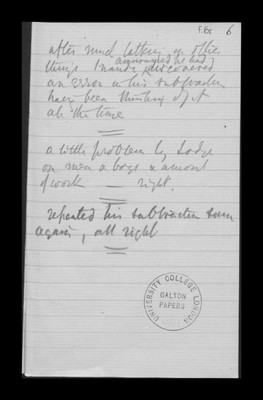 F 8v 6
after much talking on other
things Nandi announced he had
discovered
an error in his subtraction
having been thinking of it
all the time
a little problem by Lodge
on men & boys & amount
of work — right.
repeated his subtraction sum
again, all right
UNIVERSITY COLLEGE LONDON
GALTON
PAPERS